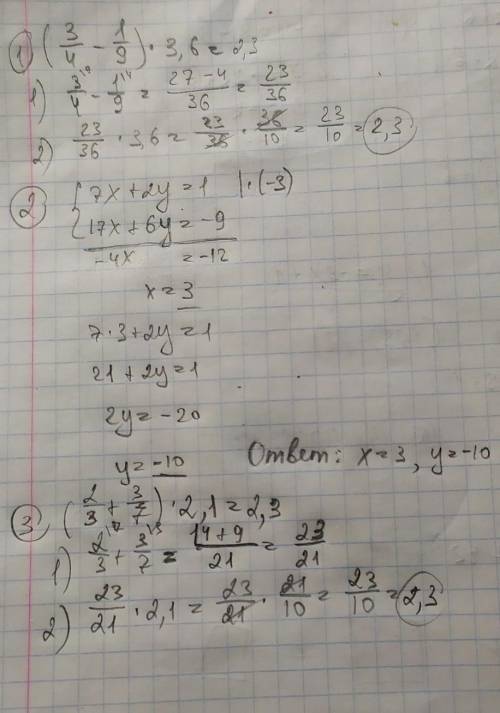 1) (3/4 - 1/9) · 3,6 = 2,3
1) 3/4 \9 - 1/9 \4 = 27-4/36 = 23/36
2) 23/36 · 3,6 = 23/36 · 36/10 = 23/10 = 2,3
2) { 7x+2y=1 | ·(-3)
17x+6y=-9
-4x = -12
x=3
7·3+2y=1
21+2y=1
2y=-20
y=-10 Ответ: x=3, y=-10
3) (2/3 + 3/7) · 2,1 = 2,3
1) 2/3 \7 + 3/7 \3 = 14+9/21 = 23/21
2) 23/21 · 2,1 = 23/21 · 21/10 = 23/10 = 2,3